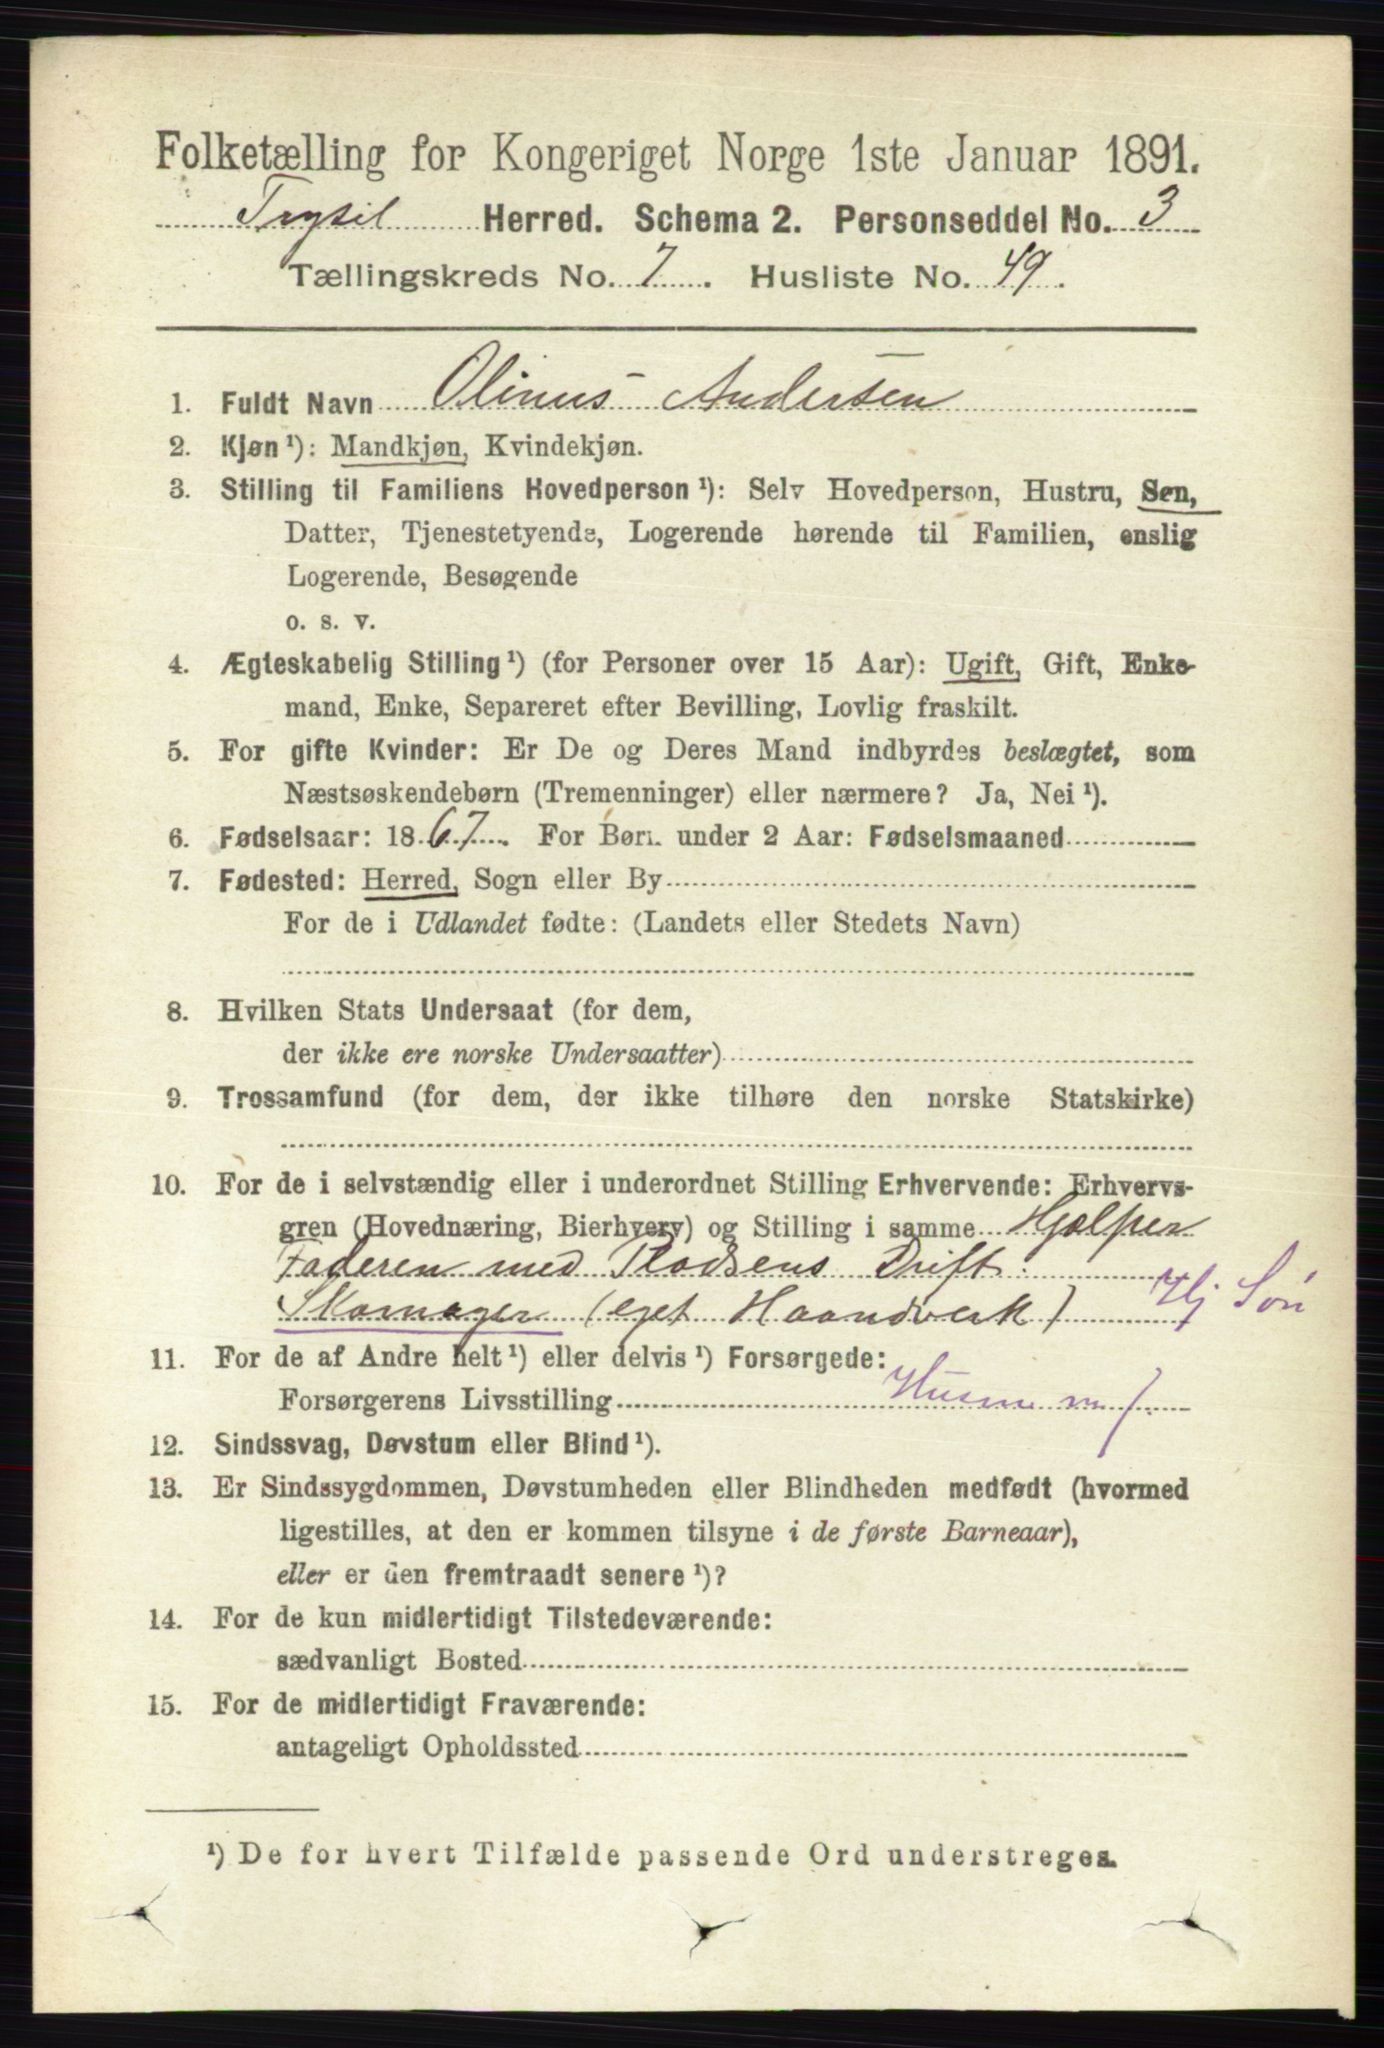 Folketælling for Kongeriget Norge 1ste Januar 1891.
Trysil Herred. Schema 2. Personseddel No. 3
Tællingskreds No. 7. Husliste No. 49.
1. Fuldt Navn Olinus Andersen
2. Kjøn ¹): Mandkjøn, Kvindekjøn.
3. Stilling til Familiens Hovedperson ¹): Selv Hovedperson, Hustru, Søn,
Datter, Tjenestetyende, Logerende hørende til Familien, enslig
Logerende, Besøgende
o. s. v.
4. Ægteskabelig Stilling ¹) (for Personer over 15 Aar): Ugift, Gift, Enke-
mand, Enke, Separeret efter Bevilling, Lovlig fraskilt.
5. For gifte Kvinder: Er De og Deres Mand indbyrdes beslægtet, som
Næstsøskendebørn (Tremenninger) eller nærmere? Ja, Nei ¹).
6. Fødselsaar: 1867. For Børn under 2 Aar: Fødselsmaaned
7. Fødested: Herred, Sogn eller By
For de i Udlandet fødte: (Landets eller Stedets Navn)
8. Hvilken Stats Undersaat (for dem,
der ikke ere norske Undersaatter)
9. Trossamfund (for dem, der ikke tilhøre den norske Statskirke)
10. For de i selvstændig eller i underordnet Stilling Erhvervende: Erhvervs-
gren (Hovednæring, Bierhverv) og Stilling i samme Hjælper
Faderen med Pladsens Drift.
Skomager (eget Haandverk) Hj Søn
11. For de af Andre helt ¹) eller delvis ¹) Forsørgede:
Forsørgerens Livsstilling Husm m/.
12. Sindssvag, Døvstum eller Blind ¹).
13. Er Sindssygdommen, Døvstumheden eller Blindheden medfødt (hvormed
ligestilles, at den er kommen tilsyne i de første Barneaar),
eller er den fremtraadt senere ¹)?
14. For de kun midlertidigt Tilstedeværende:
sædvanligt Bosted
15. For de midlertidigt Fraværende:
antageligt Opholdssted
¹) De for hvert Tilfælde passende Ord understreges.